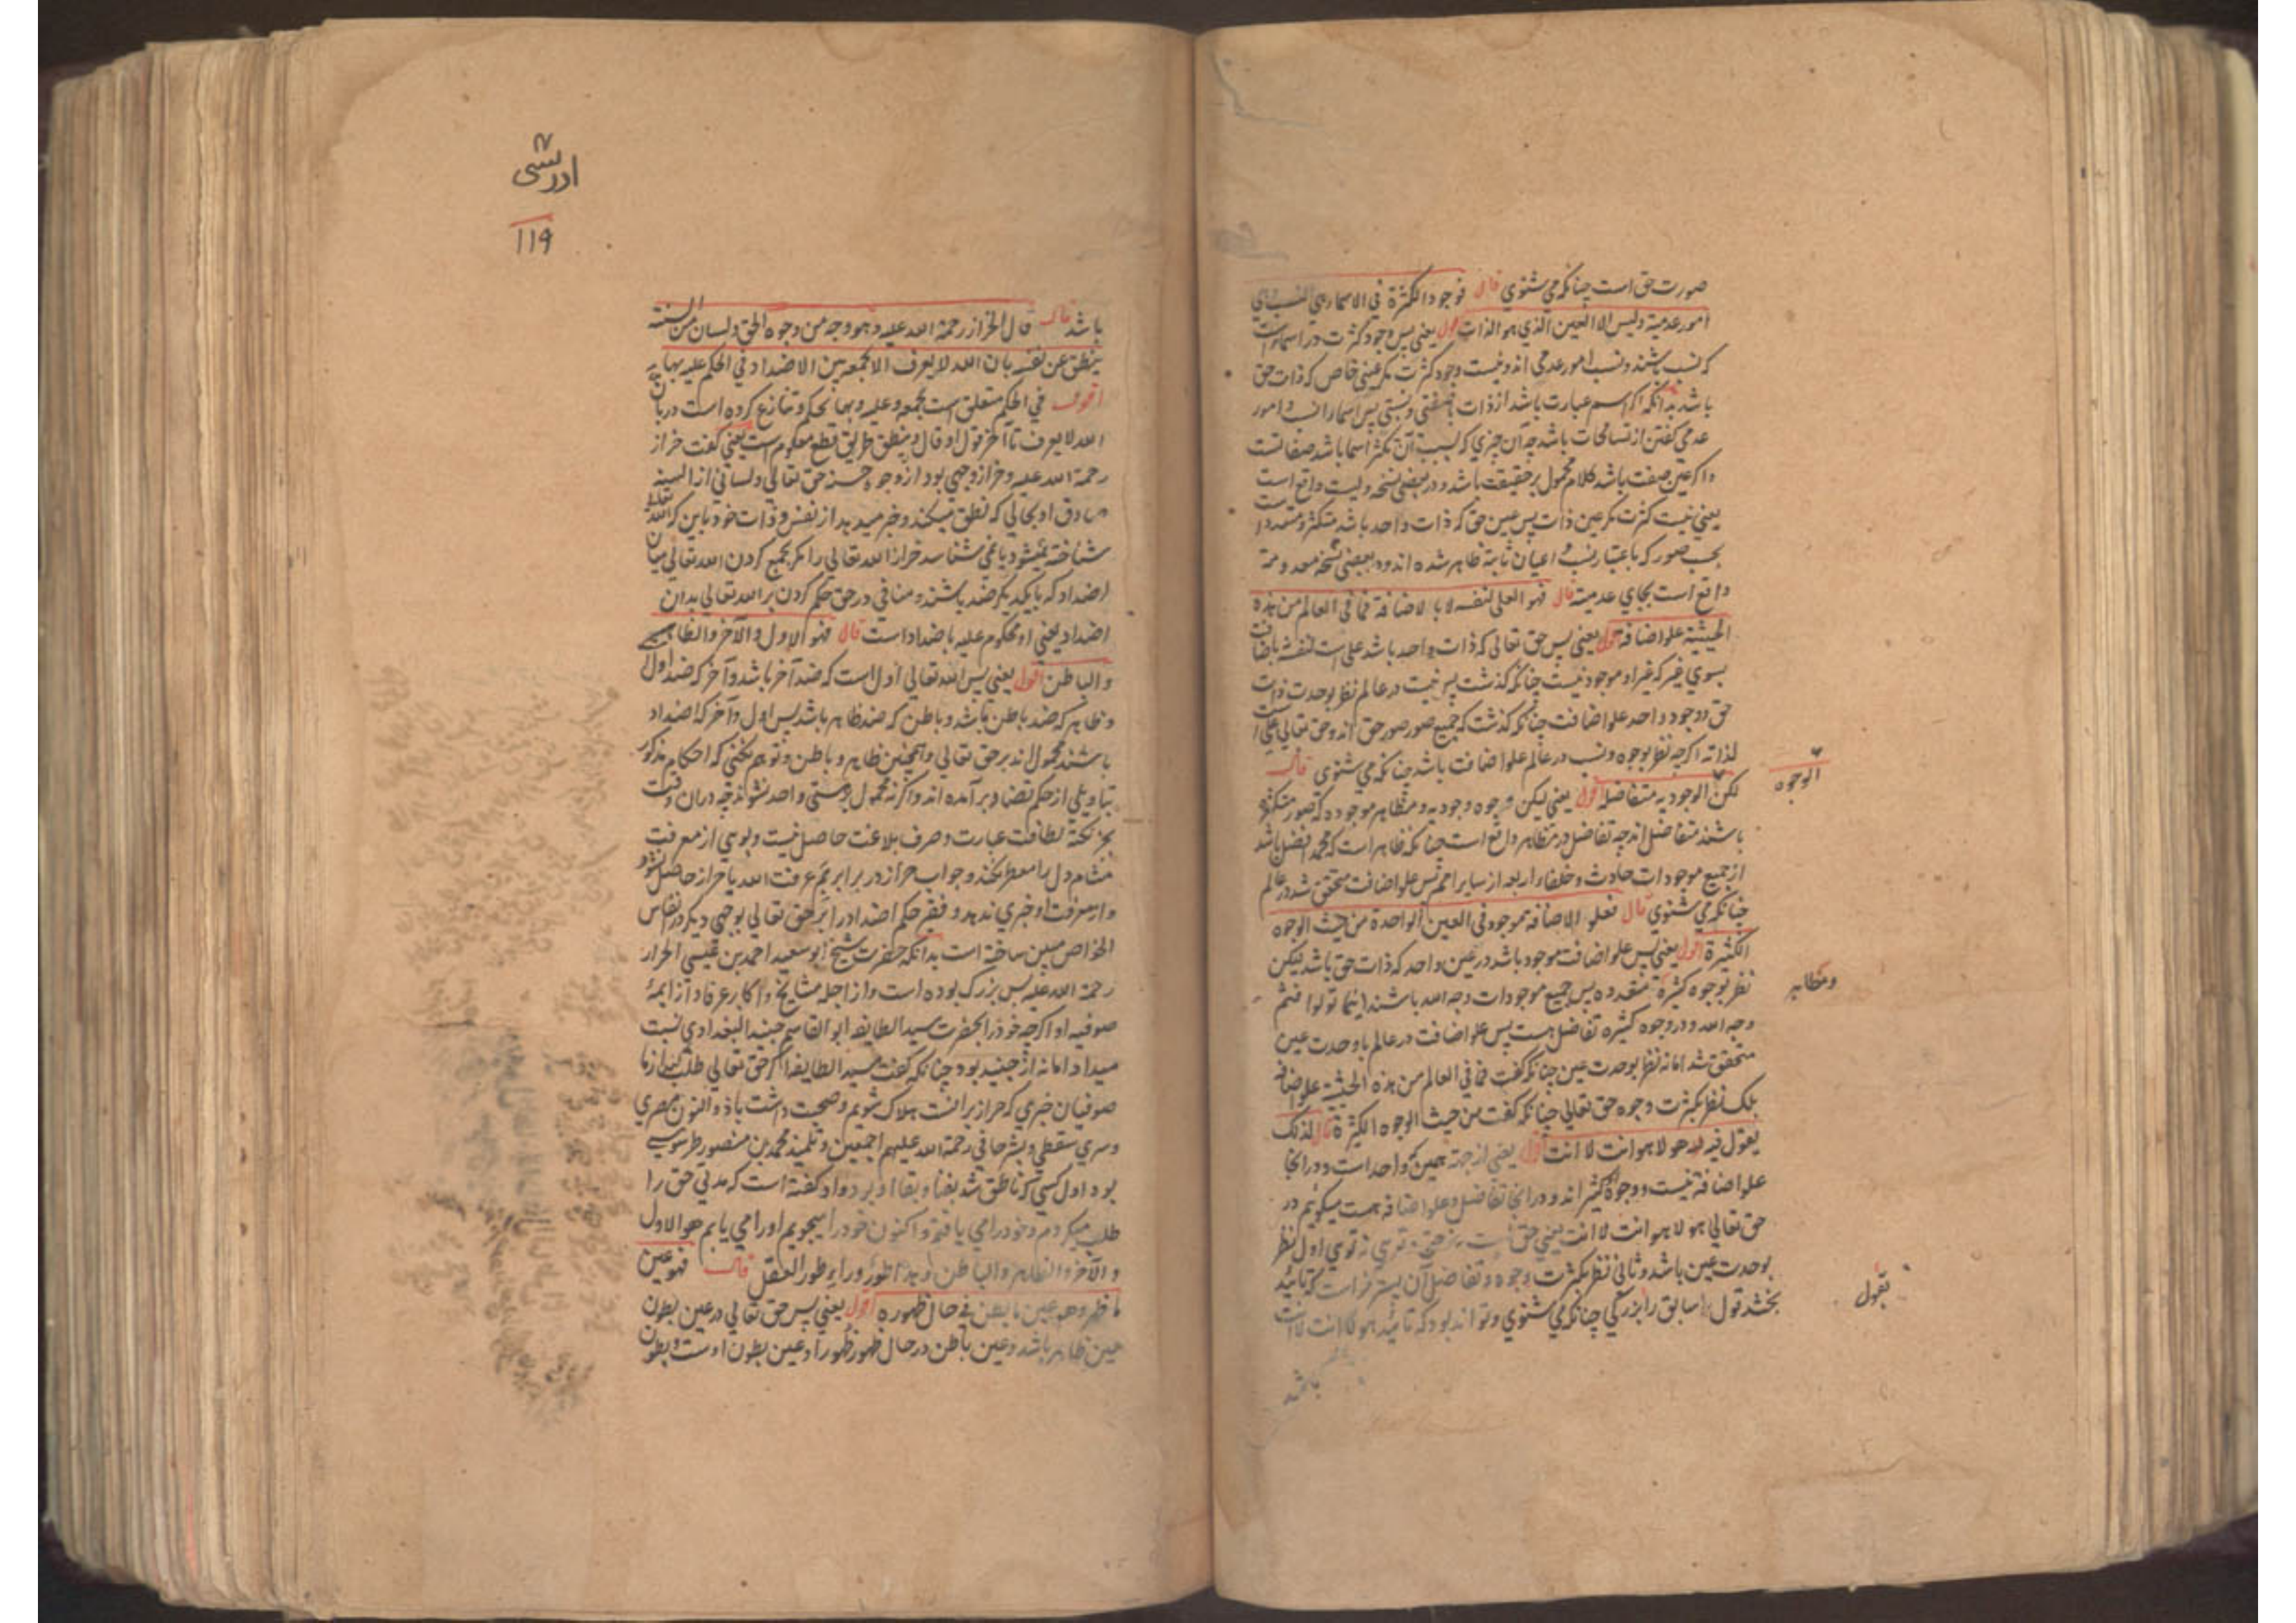 صورت حق است چنانکه می شنوی قال فوجود الکثرة فی الاسماء وهی النسب وهی
امور عدمیة ولیس الا العین الذی هو الذات اقول یعنی پس وجود کثرت در اسماست
که نسب باشند و نسب امور عدمی اند و نیست وجود کثرت مگر عینی خاص که ذات حق
باشد بدانکه اگر اسم عبارت باشد از ذات با صفتی و نسبتی پس اسما را نسب و امور
عدمی گفتن از تسامحات باشد چه آن چیزی که بسبب آن تکثر اسما باشد صفاتست
و اگر عین صفت باشد کلام محمول بر حقیقت باشد و در بعضی نسخه ولیست واقع است
یعنی نیست کثرت مگر عین ذات پس عین حق که ذات واحد باشد متکثر و متعدد است
بحسب صور که باعتبار نسب و اعیان ثابته ظاهر شده اند و در بعضی نسخه معدومة
واقع است بجای عدمیة قال فهو العلی لنفسه لا بالاضافة فما فی العالم من هذه
الحیثیة علو اضافة اقول یعنی پس حق تعالی که ذات واحد باشد علی است لنفسه نه باضافت
بسوی غیر که غیر او موجود نیست چنانکه گذشت پس نیست در عالم نظر بوحدت ذات
حق و وجود واحد علو اضافت چنانکه گذشت که جمیع صور صور حق اند و حق تعالی علی است
لذاته اگرچه نظر بوجوه و نسب در عالم علو اضافت باشد چنانکه می شنوی قال
لکن الوجودیه متفاضله اقول یعنی لیکن وجوه وجودیه و مظاهر موجوده که صور متکثره
باشند متفاضل اند چه تفاضل در مظاهر واقع است چنانکه ظاهر است که محمد افضل باشد
از جمیع موجودات حادث و خلفاء اربعه از سایر امم پس علو اضافت متحقق شد در عالم
چنانکه می شنوی قال فعلو الاضافة موجود فی العین الواحدة من حیث الوجوه
الکثیرة اقول یعنی پس علو اضافت موجود باشد در عین واحد که ذات حق باشد لیکن
نظر بوجوه کثیرة متعدده پس جمیع موجودات وجه الله باشند اینما تولوا فثم
وجه الله و در وجوه کثیره تفاضل هست پس علو اضافت در عالم با وحدت عین
متحقق شد اما نه نظر بوحدت عین چنانکه گفت فما فی العالم من هذه الحیثیة علو اضافة
بلکه نظر بکثرت وجوه حق تعالی چنانکه گفت من حیث الوجوه الکثیرة قال لذلک
یقول فیه هو لا هو انت لا انت اقول یعنی از جهته همین که واحد است و در انجا
علو اضافة نیست و وجوه کثیر اند و در انجا تفاضل و علو اضافه هست میگوئیم در
حق تعالی هو لا هو انت لا انت یعنی حق تویی نه تویی اول نظر
بوحدت عین باشد و ثانی نظر بکثرت وجوه و تفاضل آن است که تائید
بخشد قول سابق را بزرگی چنانکه می شنوی و تواند بود که تائید هو لا انت لا انت
باشد
الوجوه
ومظاهر
نقول
ادریسی
۱۱۹
باشد قال قال الخراز رحمة الله علیه وهو وجه من وجوه الحق ولسان من السنته
ینطق عن نفسه بان الله لا یعرف الا بجمعه بین الاضداد فی الحکم علیه بها
اقول فی الحکم متعلق است بجمعه و علیه و بها بحکم و تنازع کرده است در بان
الله لا یعرف تا آخر قول او قال و ینطق بطریق قطع معلوم است یعنی گفت خراز
رحمة الله علیه و خراز وجهی بود از وجوه حسنه حق تعالی و لسانی از السنه
صادق او بحالی که نطق میکند و خبر میدهد از نفس و ذات خود باین که الله تعالی
شناخته نمیشود یا نمی شناسد خراز الله تعالی را مگر بجمع کردن الله تعالی میان
اضداد که بایکدیگر ضد باشند و منافی در حق حکم کردن بر الله تعالی بدان
اضداد یعنی او محکوم علیه باضداد است قال فهو الاول والآخر والظاهر
والباطن اقول یعنی پس الله تعالی اول است که ضد آخر باشد و آخر که ضد اول
و ظاهر که ضد باطن باشد و باطن که ضد ظاهر باشد پس اول و آخر که اضداد
باشند محمول اند بر حق تعالی و همچنین ظاهر و باطن و توهم نکنی که احکام مذکور
بتاویلی از حکم تضاد برآمده اند و اگر نه محمول بر شئی واحد نشوند چه در آن وقت
بجز نکتة لطافت عبارت و صرف بلاغت حاصل نیست و بویی از معرفت
مشام دل را معطر نکند و جواب خراز در برابر بم عرفت الله یا خراز حاصل نشود
و از معرفت او خبری ندهد و فقیر حکم اضداد را بر حق تعالی بوجهی دیگر در نفایس
الخواص مبین ساخته است بدانکه حضرت شیخ ابو سعید احمد بن عیسی الخراز
رحمة الله علیه بس بزرگ بوده است و از اجله مشایخ و اکابر عرفا و از ایمهٔ
صوفیه او اگرچه خود را بحضرت سید الطایفه ابو القاسم جنید البغدادی نسبت
میداد اما نه از جنید بود چنانکه گفت سید الطایفه اگر حق تعالی طلب کند از ما
صوفیان خبری که خراز برانست هلاک شویم و صحبت داشت با ذو النون مصری
و سری سقطی و بشر حافی رحمة الله علیهم اجمعین و تلمیذ محمد بن منصور طوسی
بود اول کسی که ناطق شد بفنا و بقا او بود و او گفته است که مدتی حق را
طلب میکردم و خود را می یافتم و اکنون خود را میجویم او را می یابم هو الاول
والآخر والظاهر والباطن و هذا طور وراء طور العقل قال فهو عین
ما ظهر وهو عین ما بطن فی حال ظهوره اقول یعنی پس حق تعالی در عین بطون
عین ظاهر باشد و عین باطن در حال ظهور ظهور او عین بطون اوست و بطون